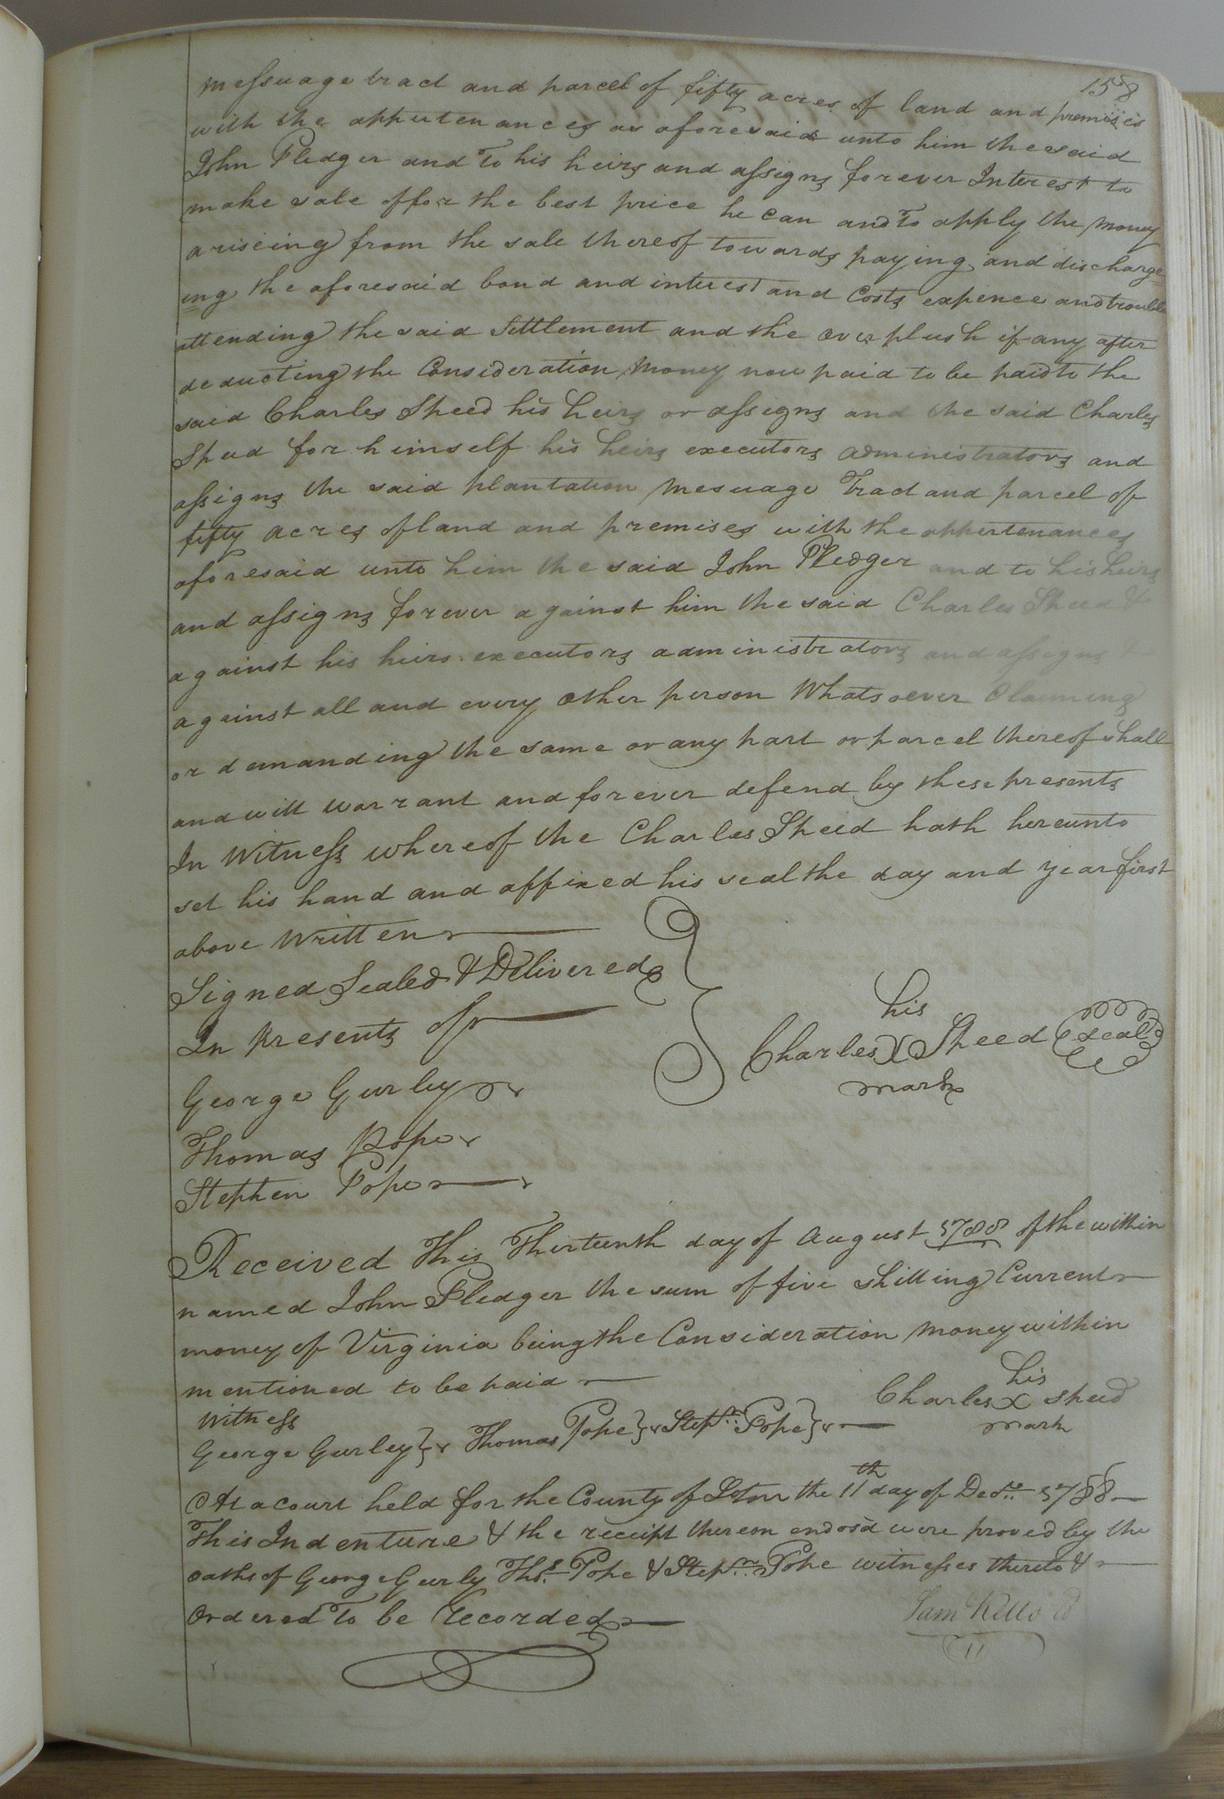 158
messuage tract and parcel of fifty acres of land and premises
with the appurtenances as aforesaid unto him the said
John Pledger and To his heirs and assigns forever Interest to
make sale off for the best price he can and To apply the money
ariseing from the sale thereof towards paying and discharge
ing the aforesaid bond and interest and Costs expence and trouble
attending the said Settlement and the overplush if any after
deducting the Consideration money now paid to be paid to the
said Charles Speed his heirs or assigns and the said Charles
Speed for himself his heirs executors administrators and
assigns the said plantation mesuage Tract and parcel of
fifty acres of land and premises with the appertenances
aforesaid unto him the said John Pledger and to his heirs
and assigns forever against him the said Charles Speed &
against his heirs executors administrators and assigns
against all and every other person Whatsoever Claiming
or demanding the same or any part or parcel thereof shall
and will warrant and forever defend by these presents
In Witness whereof the Charles Speed hath hereunto
set his hand and affixed his seal the day and year first
above Written
Signed Sealed & Delivered
In presents off
his
Charles X Speed (Seal)
mark
George Gurley
Thomas Pope
Stephen Pope
Received This Thirteenth day of August 1788 of the within
named John Pledger the sum of five shilling Current
money of Virginia being the Consideration money within
mentioned to be paid
his
Charles X Speed
mark
Witness
George Gurley } Thomas Pope } Stepn. Pope }
At a court held for the County of Soton the 11th day of Decr. 1788
This Indenture & the receipt thereon endosd were proved by the
oaths of George Gurly Ths. Pope & Stepn. Pope witnesses thereto &
Ordered To be recorded
Sam Kello